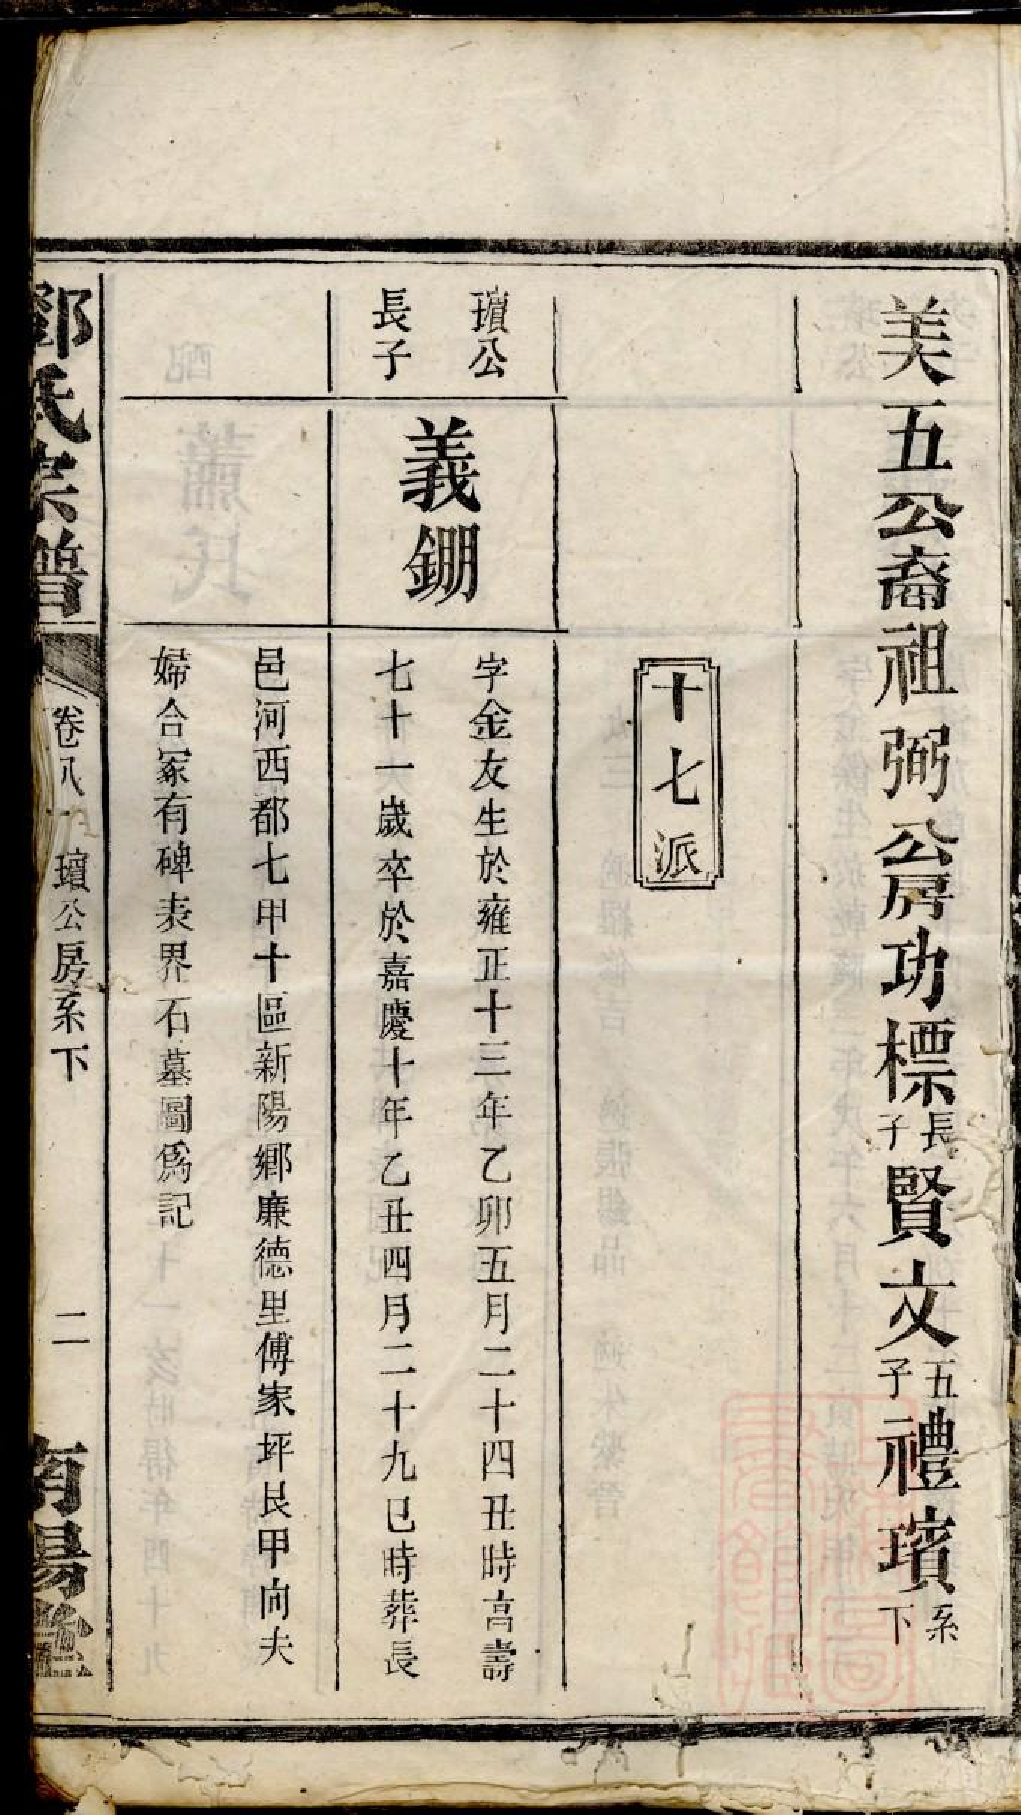 美五公裔祖弼公房功標長子賢文五子禮璸系下
十七派
璸公
長子
義鎙
字金友生於雍正十三年乙卯五月二十四丑時高壽
七十一歲卒於嘉慶十年乙丑四月二十九巳時葬長
邑河西都七甲十區新陽鄉廉德里傅家坪艮甲向夫
婦合冢有碑表界石墓圖爲記
鄧氏宗譜
卷八
璸公房系下
二
南陽堂